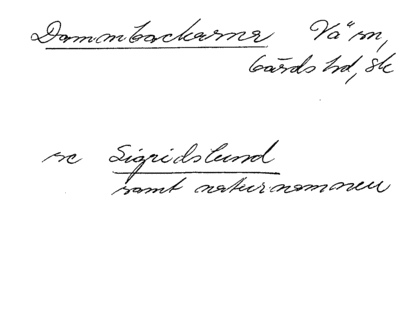 Dammbackarna Vä sn,
Gärds hd, Sk
se Sigridslund
samt naturnamnen